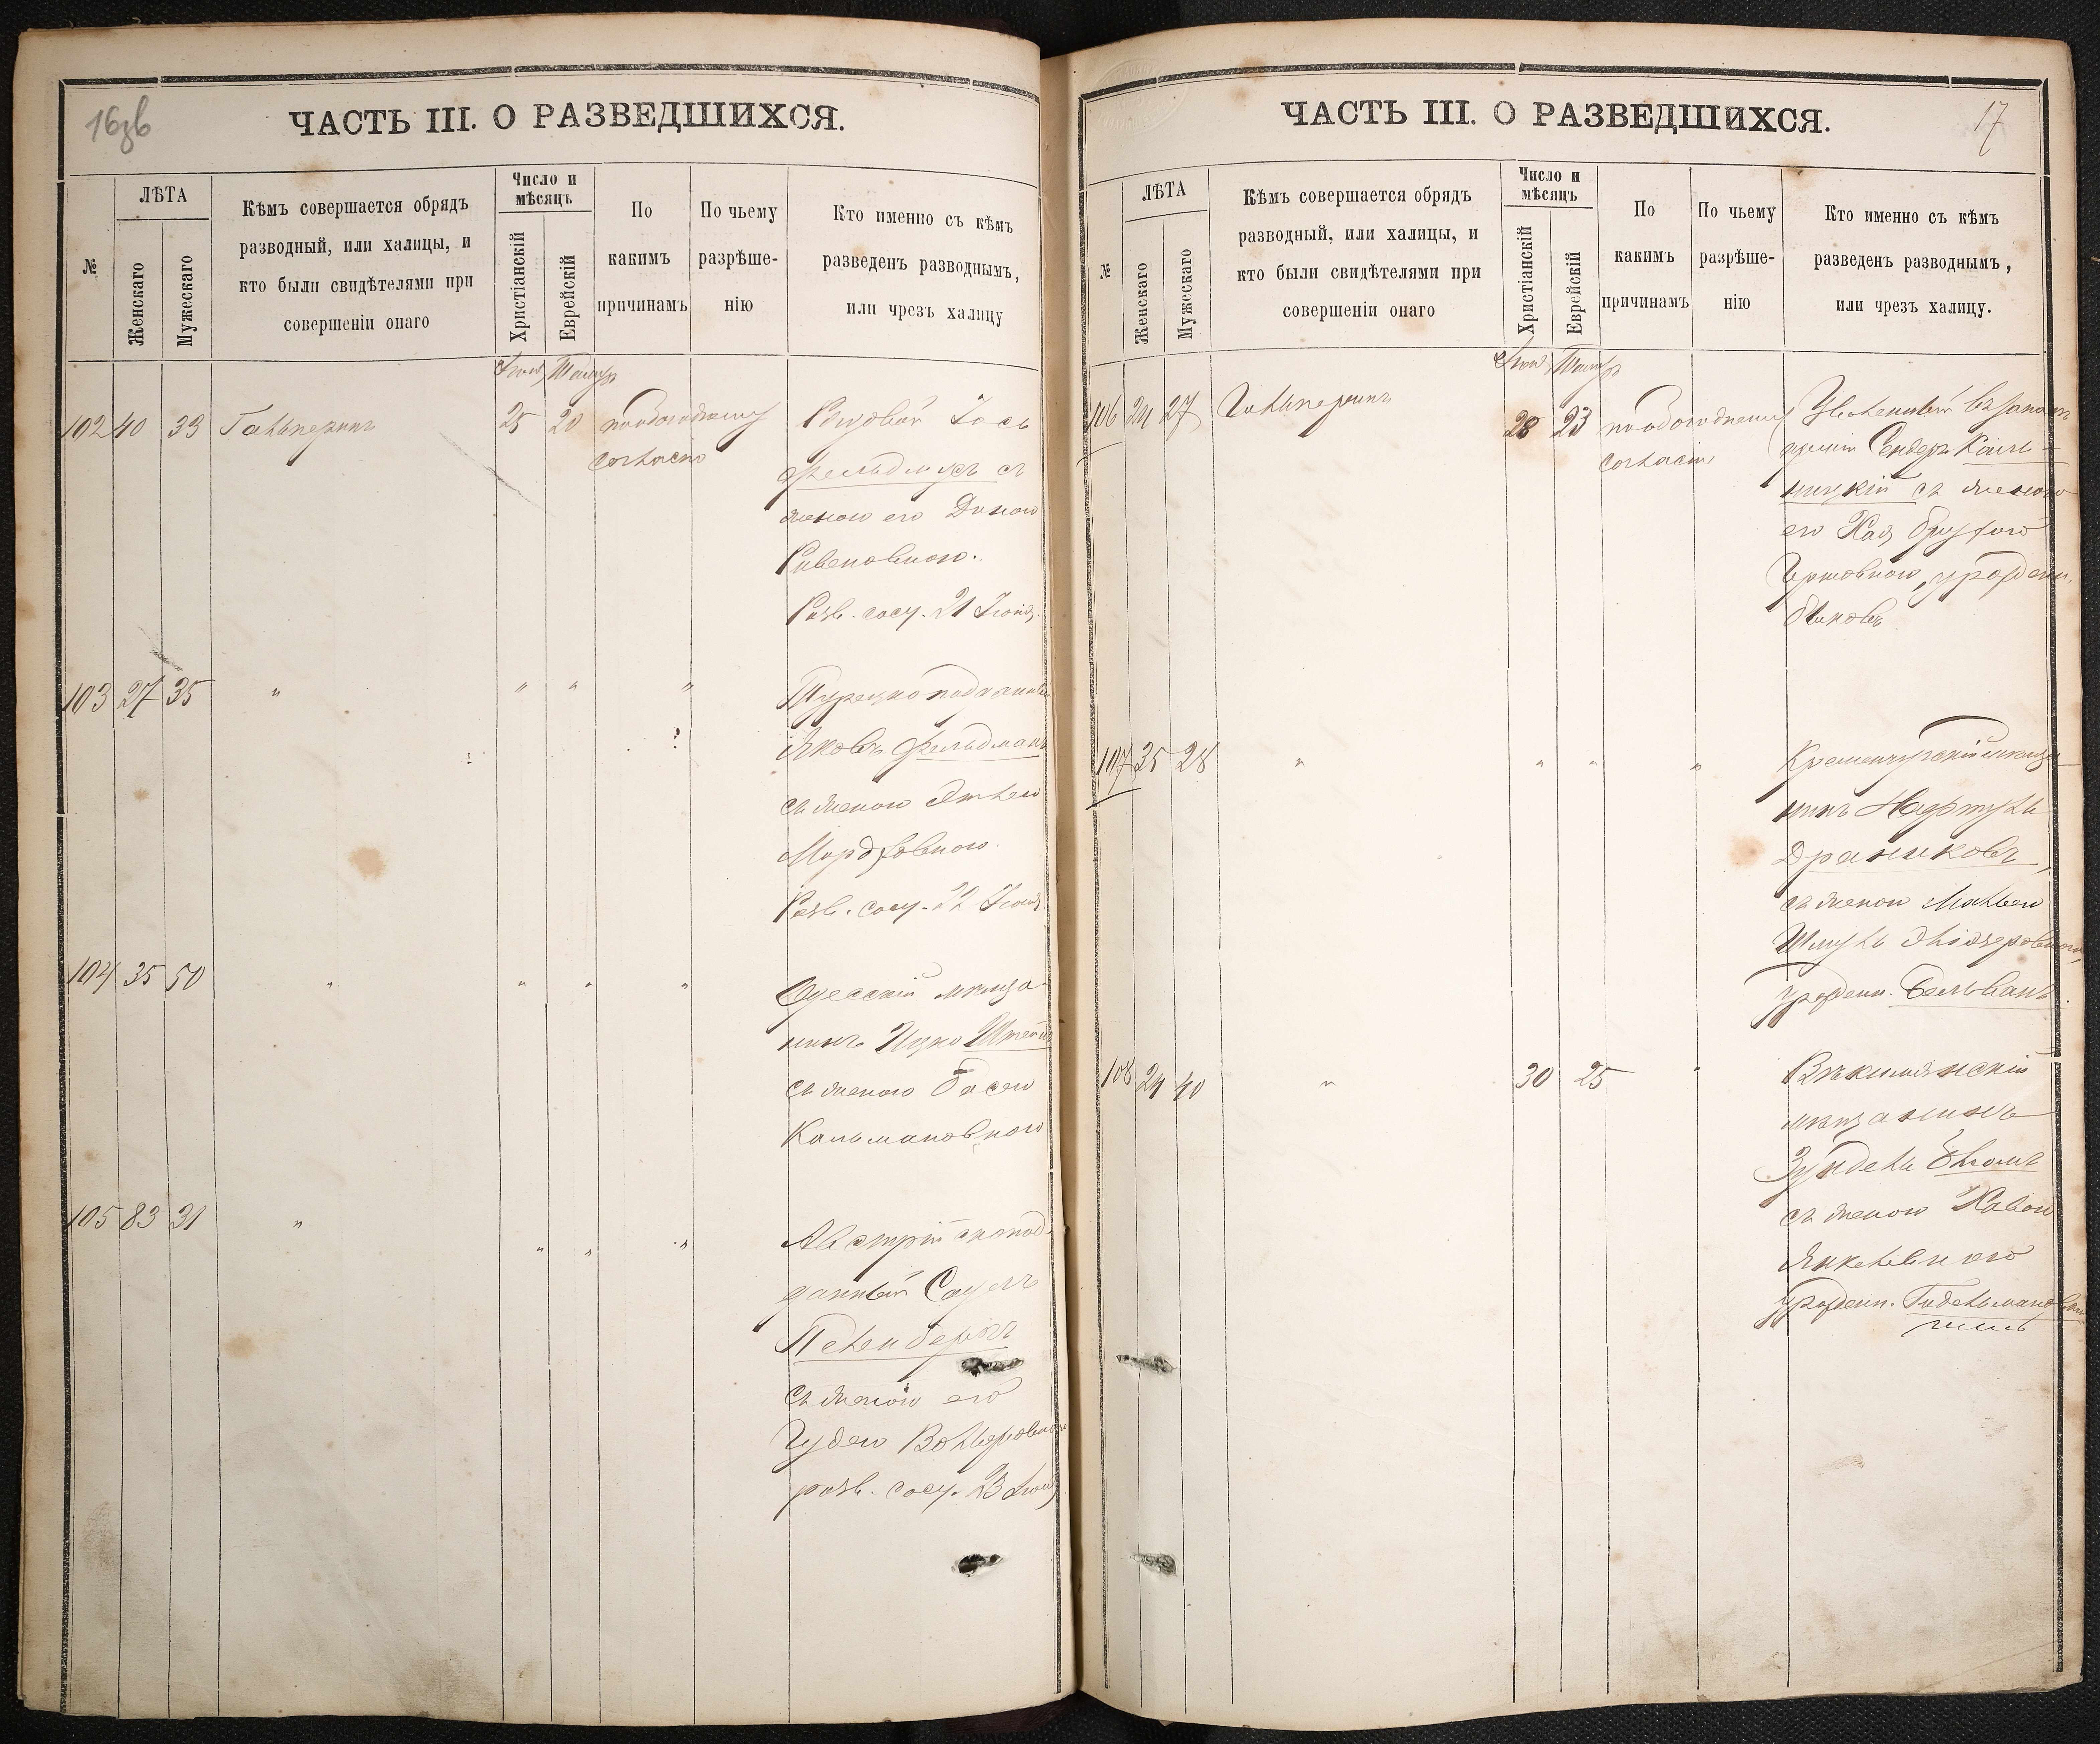 16зв
ЧАСТЬ III. О РАЗВЕДШИХСЯ.
№
ЛѢТА
Женскаго
Мужескаго
Кѣмъ совершается обрядъ
разводный, или халицы, и
кто были свидѣтелями при
совершеніи онаго
Число и
мѣсяцъ
Христіанскій
Еврейскій
По
какимъ
причинамъ
По чьему
разрѣше-
нію
Кто именно съ кѣмъ
разведенъ разводнымъ,
или чрезъ халицу
102 40 33 Гальперинъ 25 20 пообоюдному
согласію
Рядовой Іось
Фельдмусъ съ
женою его
Рувеновною.
Разв. сост. 21 Іюня.
103 27 35 " " " "
Турецкоподданный
Яковъ Фельдманъ
съ женою Этлею
Мордховною.
Разв. сост. 22 Іюня
104 35 50 " " " "
Одесскій мѣща-
нинъ Ицко Штейнъ
съ женою Басею
Кальмановною
105 83 31 " " " "
Австрійскопод-
данный Саулъ
съ женою его
разв. сост. 23 Іюня
17
ЧАСТЬ III. О РАЗВЕДШИХСЯ.
№
ЛѢТА
Женскаго
Мужескаго
Кѣмъ совершается обрядъ
разводный, или халицы, и
кто были свидѣтелями при
совершеніи онаго
Число и
мѣсяцъ
Христіанскій
Еврейскій
По
какимъ
причинамъ
По чьему
разрѣше-
нію
Кто именно съ кѣмъ
разведенъ разводнымъ,
или чрезъ халицу.
106 24 27 Гальперинъ 28 23 пообоюдному
согласію
Уволенный въ запасъ
арміи Сендеръ Каль-
ницкій съ женою
его
урожден.
107 35 28 " " " "
Кременчугскій мѣща-
нинъ Нафтуль
Драниковъ,
съ женою Малкею
Шмуль Эліазеровною,
урожден. Бельванъ.
108 24 40 " 30 25 "
мѣщанинъ
Зундель Блюмъ
съ женою Хавою
Янкелевною
урожден.